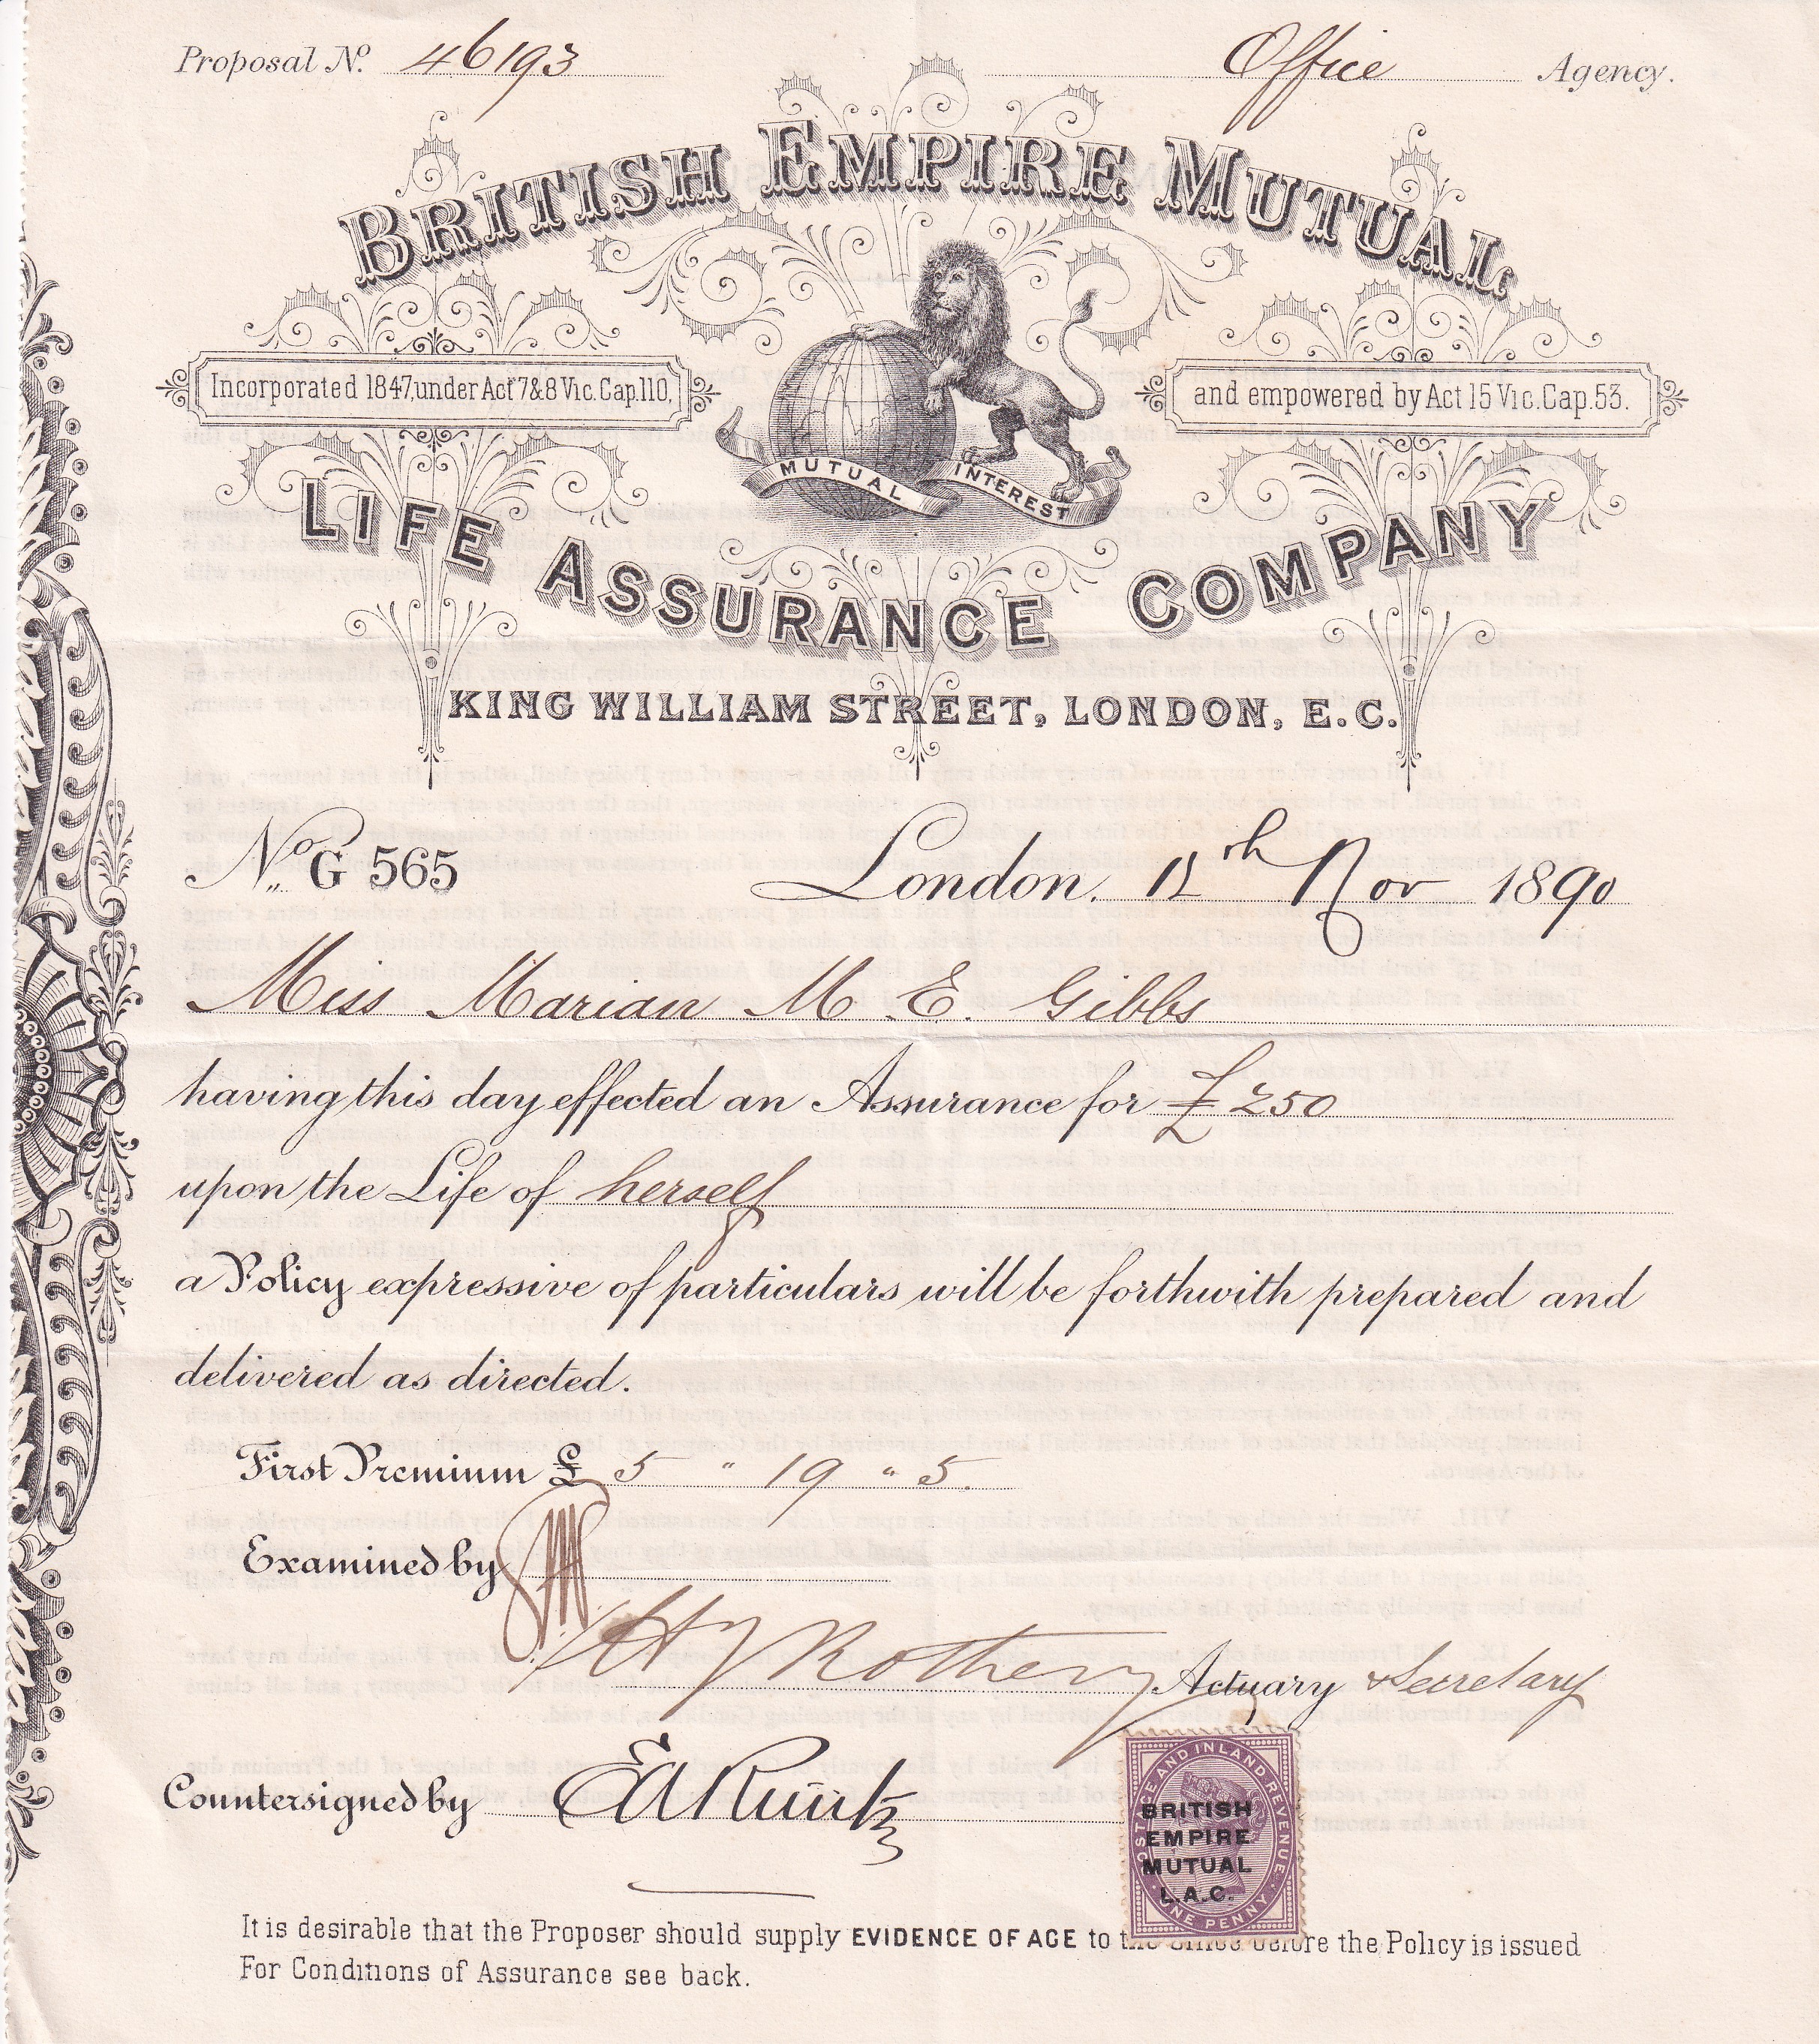 Proposal No. 46193 Office Agency.
BRITISH EMPIRE MUTUAL
Incorporated 1847, under Act 7 & 8 Vic. Cap. 110,
and empowered by Act 15 Vic. Cap. 53.
MUTUAL INTEREST
LIFE ASSURANCE COMPANY
KING WILLIAM STREET, LONDON, E.C.
No. G 565 London. th Nov 1890
Miss Marian M. E. Gibbs
having this day effected an Assurance for £250
upon the Life of herself
a Policy expressive of particulars will be forthwith prepared and
delivered as directed.
First Premium £ 5 " 19 " 5.
Examined by
Rothery Actuary & Secretary
Countersigned by
POSTAGE AND INLAND REVENUE
BRITISH
EMPIRE
MUTUAL
L.A.C.
ONE PENNY
It is desirable that the Proposer should supply EVIDENCE OF AGE to the Office before the Policy is issued
For Conditions of Assurance see back.